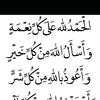 الحمد لله على كل نعمة
وأسأل الله من كل خير
وأعوذ بالله من كل شر